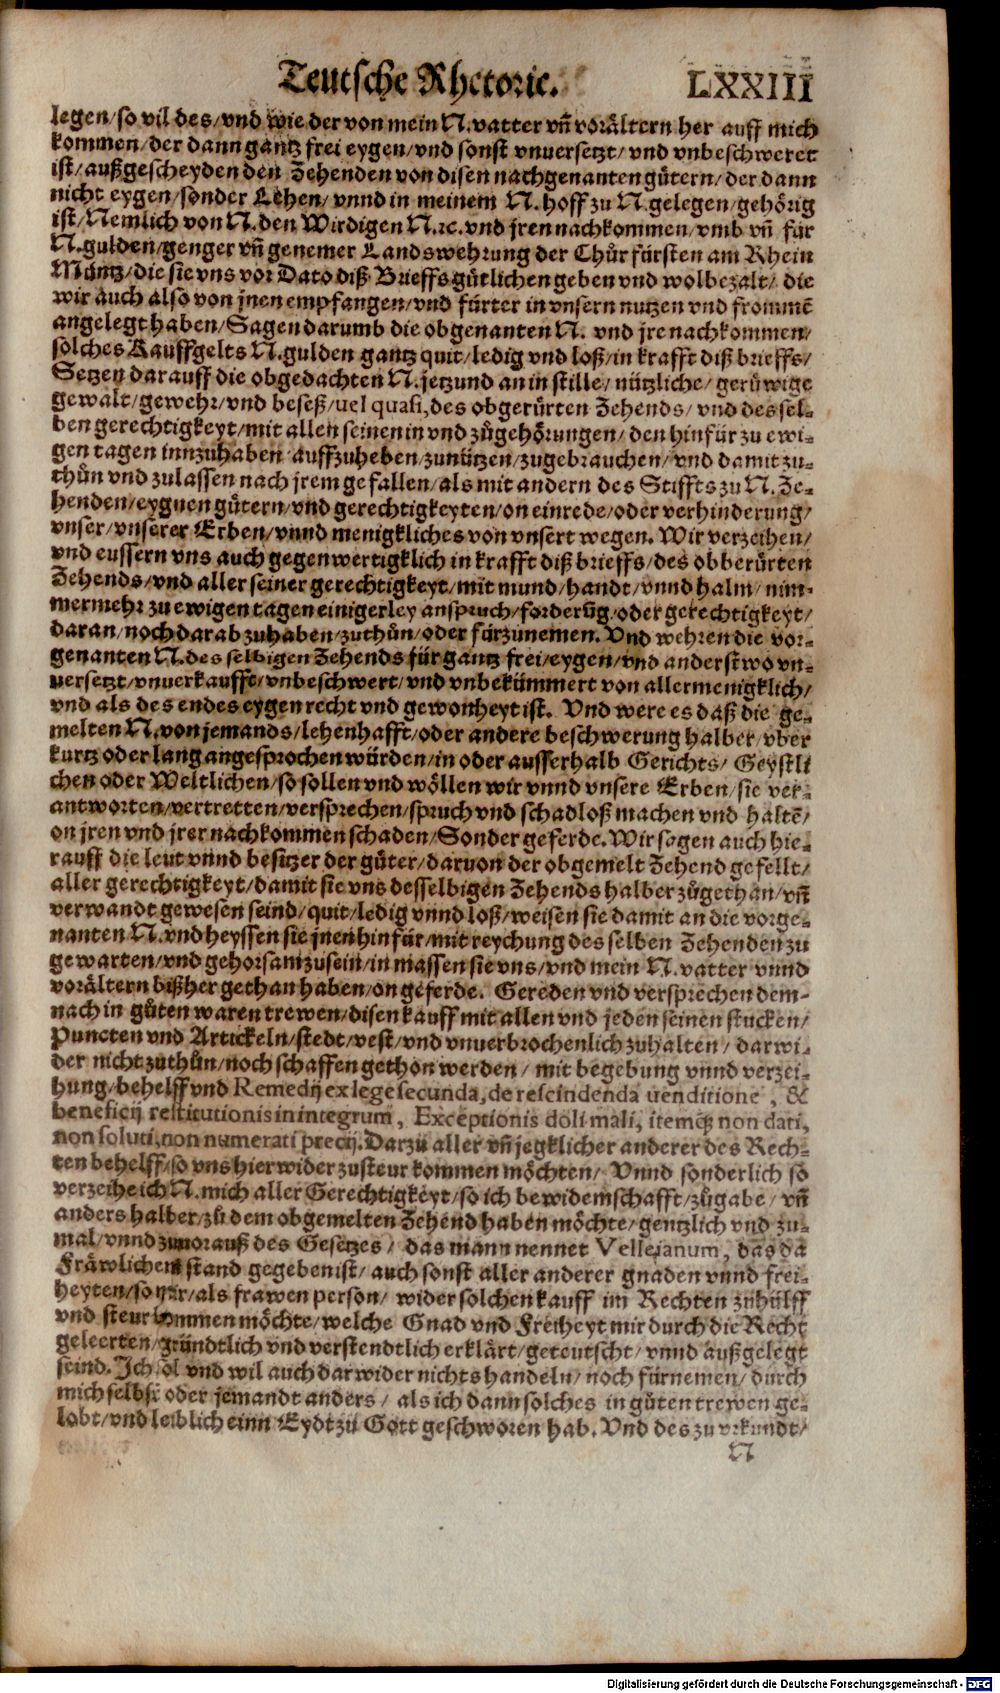 Teutsche Rhetoric. LXXIII
legen/so vil des/vnd wie der von mein N.vatter vñ vorältern her auff mich
kommen/der dann gantz frei eygen/vnd sonst vnuersetzt/vnd vnbeschweret
ist/außgescheyden den Zehenden von disen nachgenanten gütern/der dann
nicht eygen/sonder Lehen/vnnd in meinem N. hoff zu N.gelegen/gehörig
ist/Nemlich von N.den Wirdigen N.ꝛc.vnd jren nachkommen/vmb vñ für
N.gulden/genger vñ genemer Landswehrung der Chůrfürsten am Rhein
Müntz/die sie vns vor Dato diß Brieffs gütlichen geben vnd wolbezalt/die
wir auch also von jnen empfangen/vnd fürter in vnsern nutzen vnd frommē
angelegt haben/Sagen darumb die obgenanten N. vnd jre nachkommen/
solches Kauffgelts N.gulden gantz quit/ledig vnd loß/in krafft diß brieffs/
Setzen darauff die obgedachten N.jetzund an in stille/nützliche/gerüwige
gewalt/gewehr/vnd beseß/uel quasi,des obgerürten Zehends/vnd des sel-
ben gerechtigkeyt/mit allen seinen in vnd zůgehörungen/den hinfür zu ewi-
gen tagen innzuhaben/auffzuheben/zunützen/zugebrauchen/vnd damit zu-
thůn vnd zulassen nach jrem gefallen/als mit andern des Stiffts zu N.Ze-
henden/eygnen gütern/vnd gerechtigkeyten/on einrede/oder verhinderung/
vnser/vnserer Erben/vnnd menigkliches von vnsert wegen.Wir verzeihen/
vnd eussern vns auch gegenwertigklich in krafft diß brieffs/des obberürten
Zehends/vnd aller seiner gerechtigkeyt/mit mund/handt/vnnd halm/nim-
mermehr zu ewigen tagen einigerley anspruch/forderūg/oder gerechtigkeyt/
daran/noch darab zuhaben/zuthůn/oder fürzunemen.Vnd wehren die vor-
genanten N.des selbigen Zehends für gantz frei/eygen/vnd anderstwo vn-
uersetzt/vnuerkaufft/vnbeschwert/vnd vnbekümmert von allermenigklich/
vnd als des endes eygen recht vnd gewonheyt ist. Vnd were es daß die ge-
melten N.von jemands/lehenhafft/oder andere beschwerung halber/vber
kurtz oder lang angesprochen würden/in oder ausserhalb Gerichts/Geystli
chen oder Weltlichen/so sollen vnd wöllen wir vnnd vnsere Erben/sie ver-
antworten/vertretten/versprechen/spruch vnd schadloß machen vnd haltē/
on jren vnd jrer nachkommen schaden/Sonder geferde.Wir sagen auch hie-
rauff die leut vnnd besitzer der güter/daruon der obgemelt Zehend gefellt/
aller gerechtigkeyt/damit sie vns desselbigen Zehends halber zůgethan/vñ
verwandt gewesen seind/quit/ledig vnnd loß/weisen sie damit an die vorge-
nanten N.vnd heyssen sie jnen hinfür/mit reychung des selben Zehenden zu
gewarten/vnd gehorsam zusein/in massen sie vns/vnd mein N.vatter vnnd
vorältern bißher gethan haben/on geferde. Gereden vnd versprechen dem-
nach in gůten waren trewen/disen kauff mit allen vnd jeden seinen stucken/
Puncten vnd Artickeln/stedt/vest/vnd vnuerbrochenlich zuhalten/darwi-
der nicht zuthůn/noch schaffen gethon werden/mit begebung vnnd verzei-
hung/behelff vnd Remedij ex lege secunda, de rescindenda uenditione, &
beneficij restitutionis in integrum, Exceptionis doli mali, itemq́; non dati,
non soluti,non numerati precij.Darzu aller vñ jegklicher anderer des Rech-
ten behelff/so vns hierwider zusteur kommen möchten/Vnnd sonderlich so
verzeihe ich N.mich aller Gerechtigkeyt/so ich bewidemschafft/zůgabe/vñ
anders halber/zů dem obgemelten Zehend haben möchte/gentzlich vnd zu-
mal/vnnd zuuorauß des Gesetzes/das mann nennet Velleianum, das da
Fräwlichem stand gegeben ist/auch sonst aller anderer gnaden vnnd frei-
heyten/so mir/als frawen person/wider solchen kauff im Rechten zuhülff
vnd steur kommen möchte/welche Gnad vnd Freiheyt mir durch die Recht
geleerten/gründtlich vnd verstendtlich erklärt/geteutscht/vnnd außgelegt
seind.Ich sol vnd wil auch darwider nichts handeln/noch fürnemen/durch
mich selbst oder jemandt anders/als ich dann solches in gůten trewen ge-
lobt/vnd leiblich einn Eydt zů Gott geschworen hab.Vnd des zu vrkundt/
N
Digitalisierung gefördert durch die Deutsche Forschungsgemeinschaft - DFG